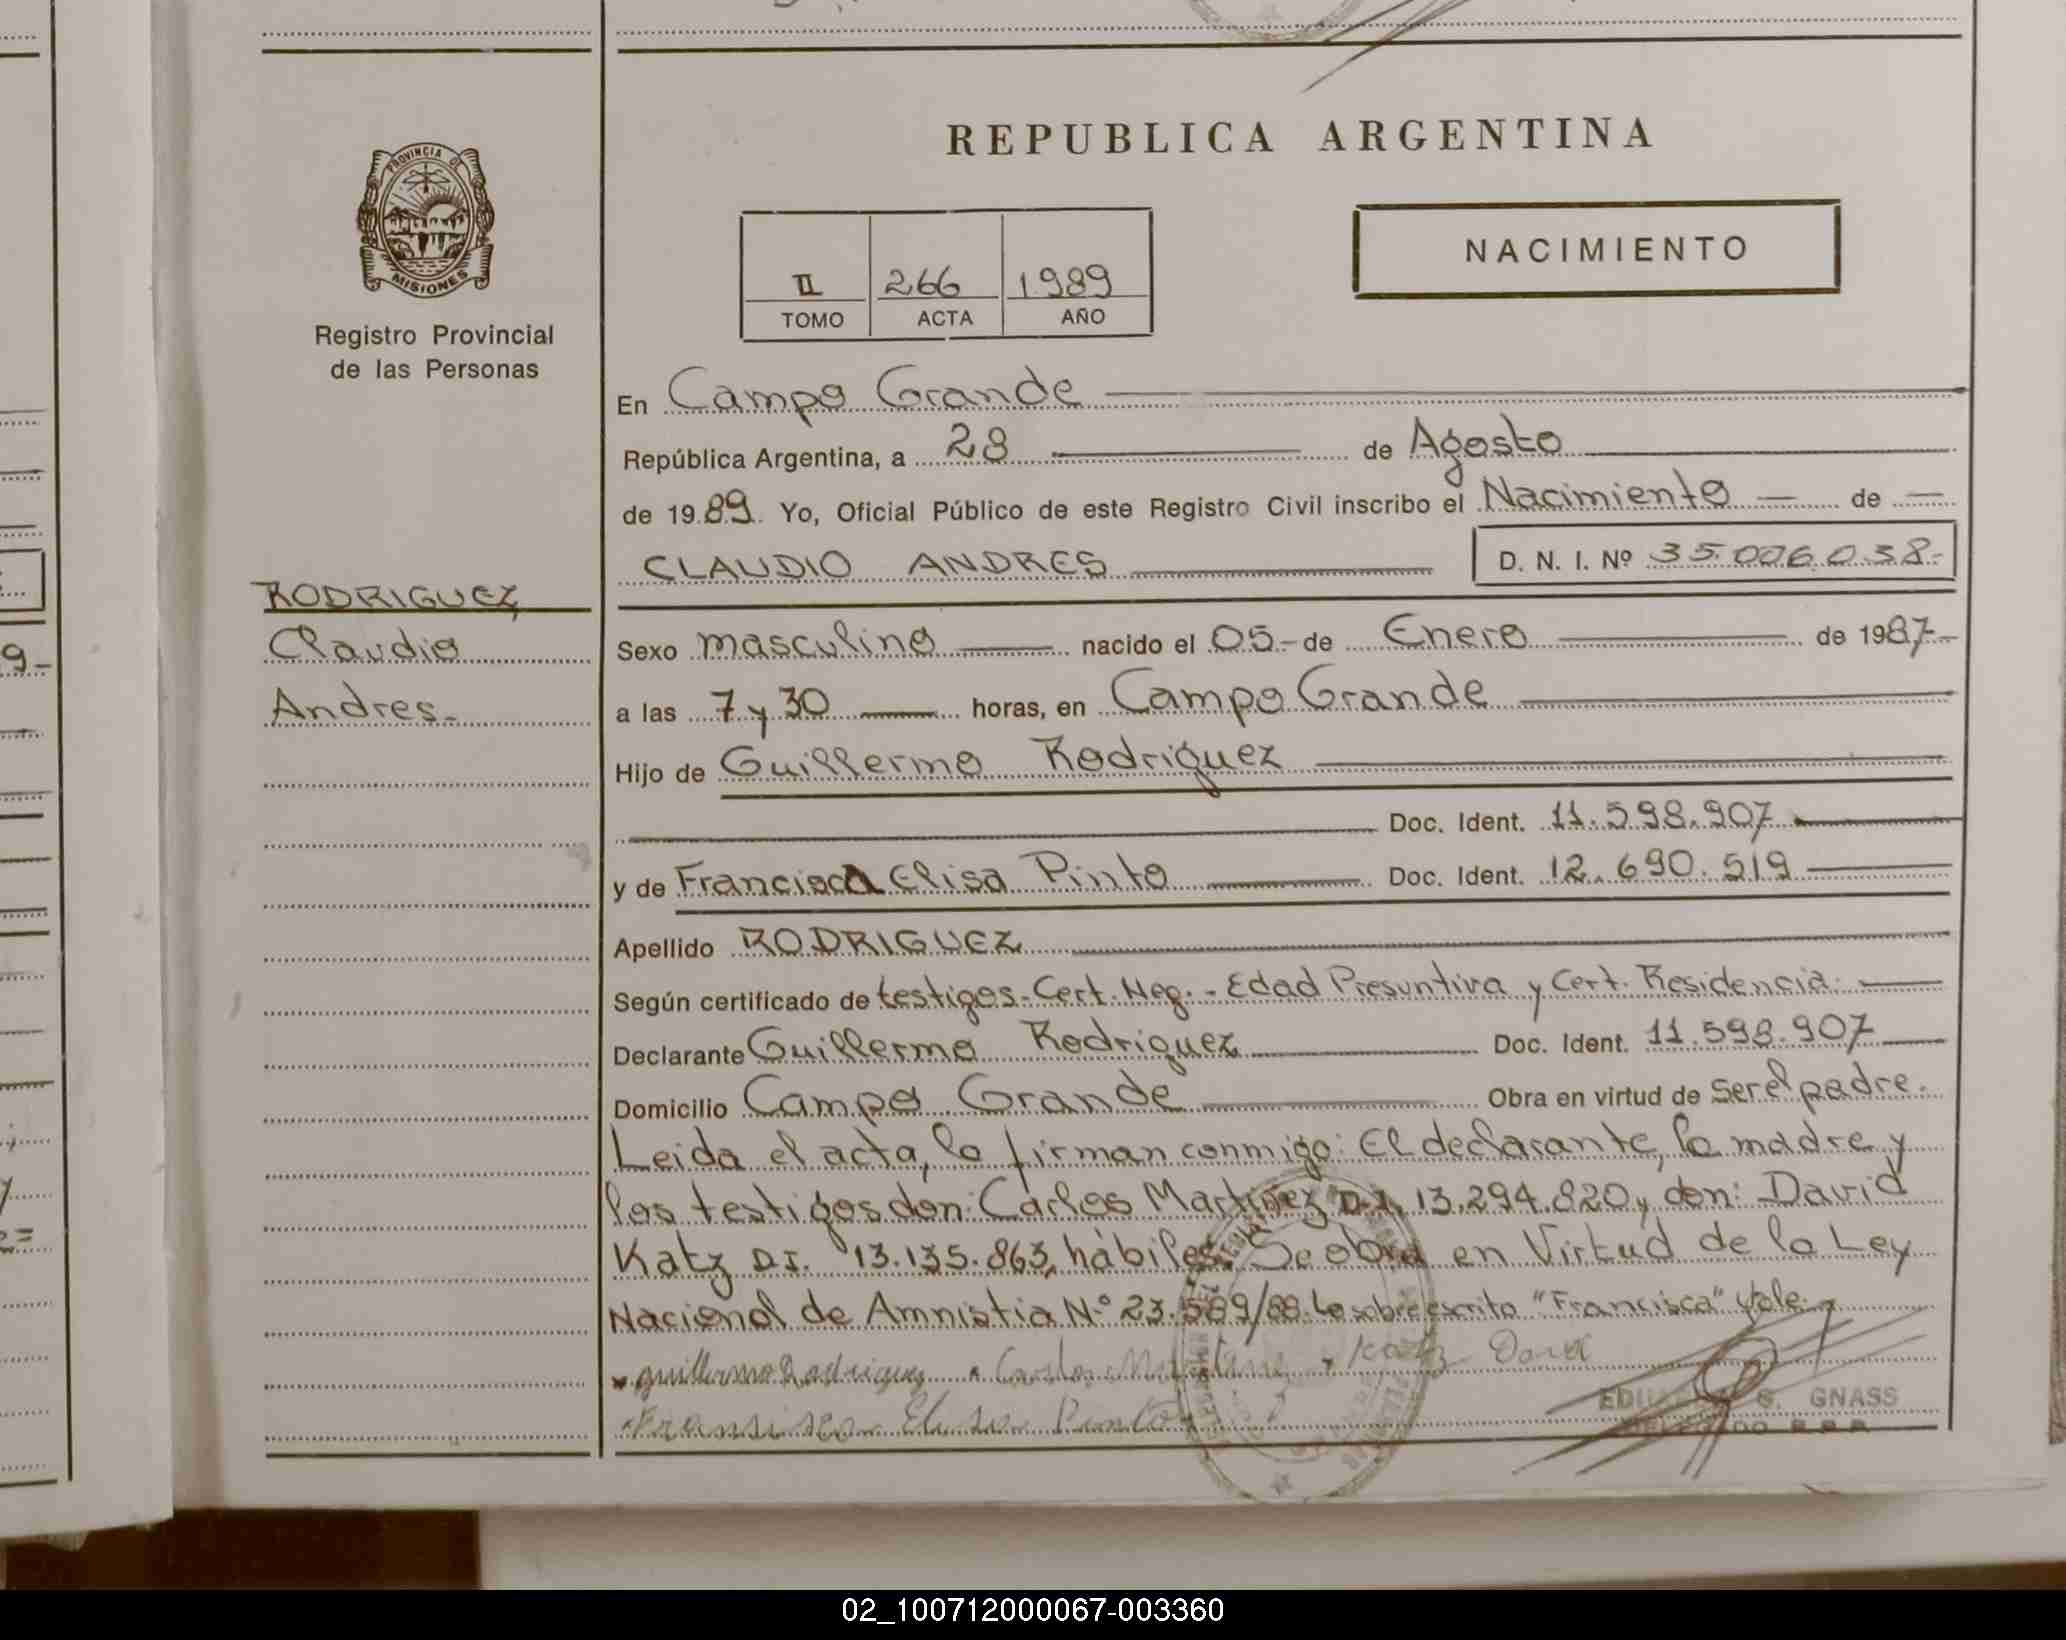 REPUBLICA ARGENTINA
PROVINCIA DE
MISIONES
Registro Provincial
de las Personas
NACIMIENTO
II 266 1989
TOMO ACTA AÑO
En Campo Grande
República Argentina, a 28 de Agosto
de 1989. Yo, Oficial Público de este Registro Civil inscribo el Nacimiento de
CLAUDIO ANDRES D. N. I. Nº 35.006.038.-
RODRIGUEZ,
Claudio
Andres.-
Sexo masculino nacido el 05- de Enero de 1987-
a las 7 y 30 horas, en Campo Grande
Hijo de Guillermo Rodriguez
Doc. Ident. 11.598.907
y de Francisca Elisa Pinto Doc. Ident. 12.690.519
Apellido RODRIGUEZ
Según certificado de testigos-Cert. Neg.-Edad Presuntiva y Cert. Residencia.
Declarante Guillermo Rodriguez Doc. Ident. 11.598.907
Domicilio Campo Grande Obra en virtud de ser el padre.
Leida el acta, la firman conmigo: El declarante, la madre y
los testigos don: Carlos Martinez D.I. 13.294.820 y don: David
Katz D.I. 13.135.863, hábiles. Se obra en Virtud de la Ley
Nacional de Amnistia N.º 23.589/88. Lo sobreescrito "Francisca" Vale.
guillermo Rodriguez Carlos Martinez Katz David
Fransisca Elisa Pinto
EDUARDO S. GNASS
DELEGADO R.P.P.
02_100712000067-003360